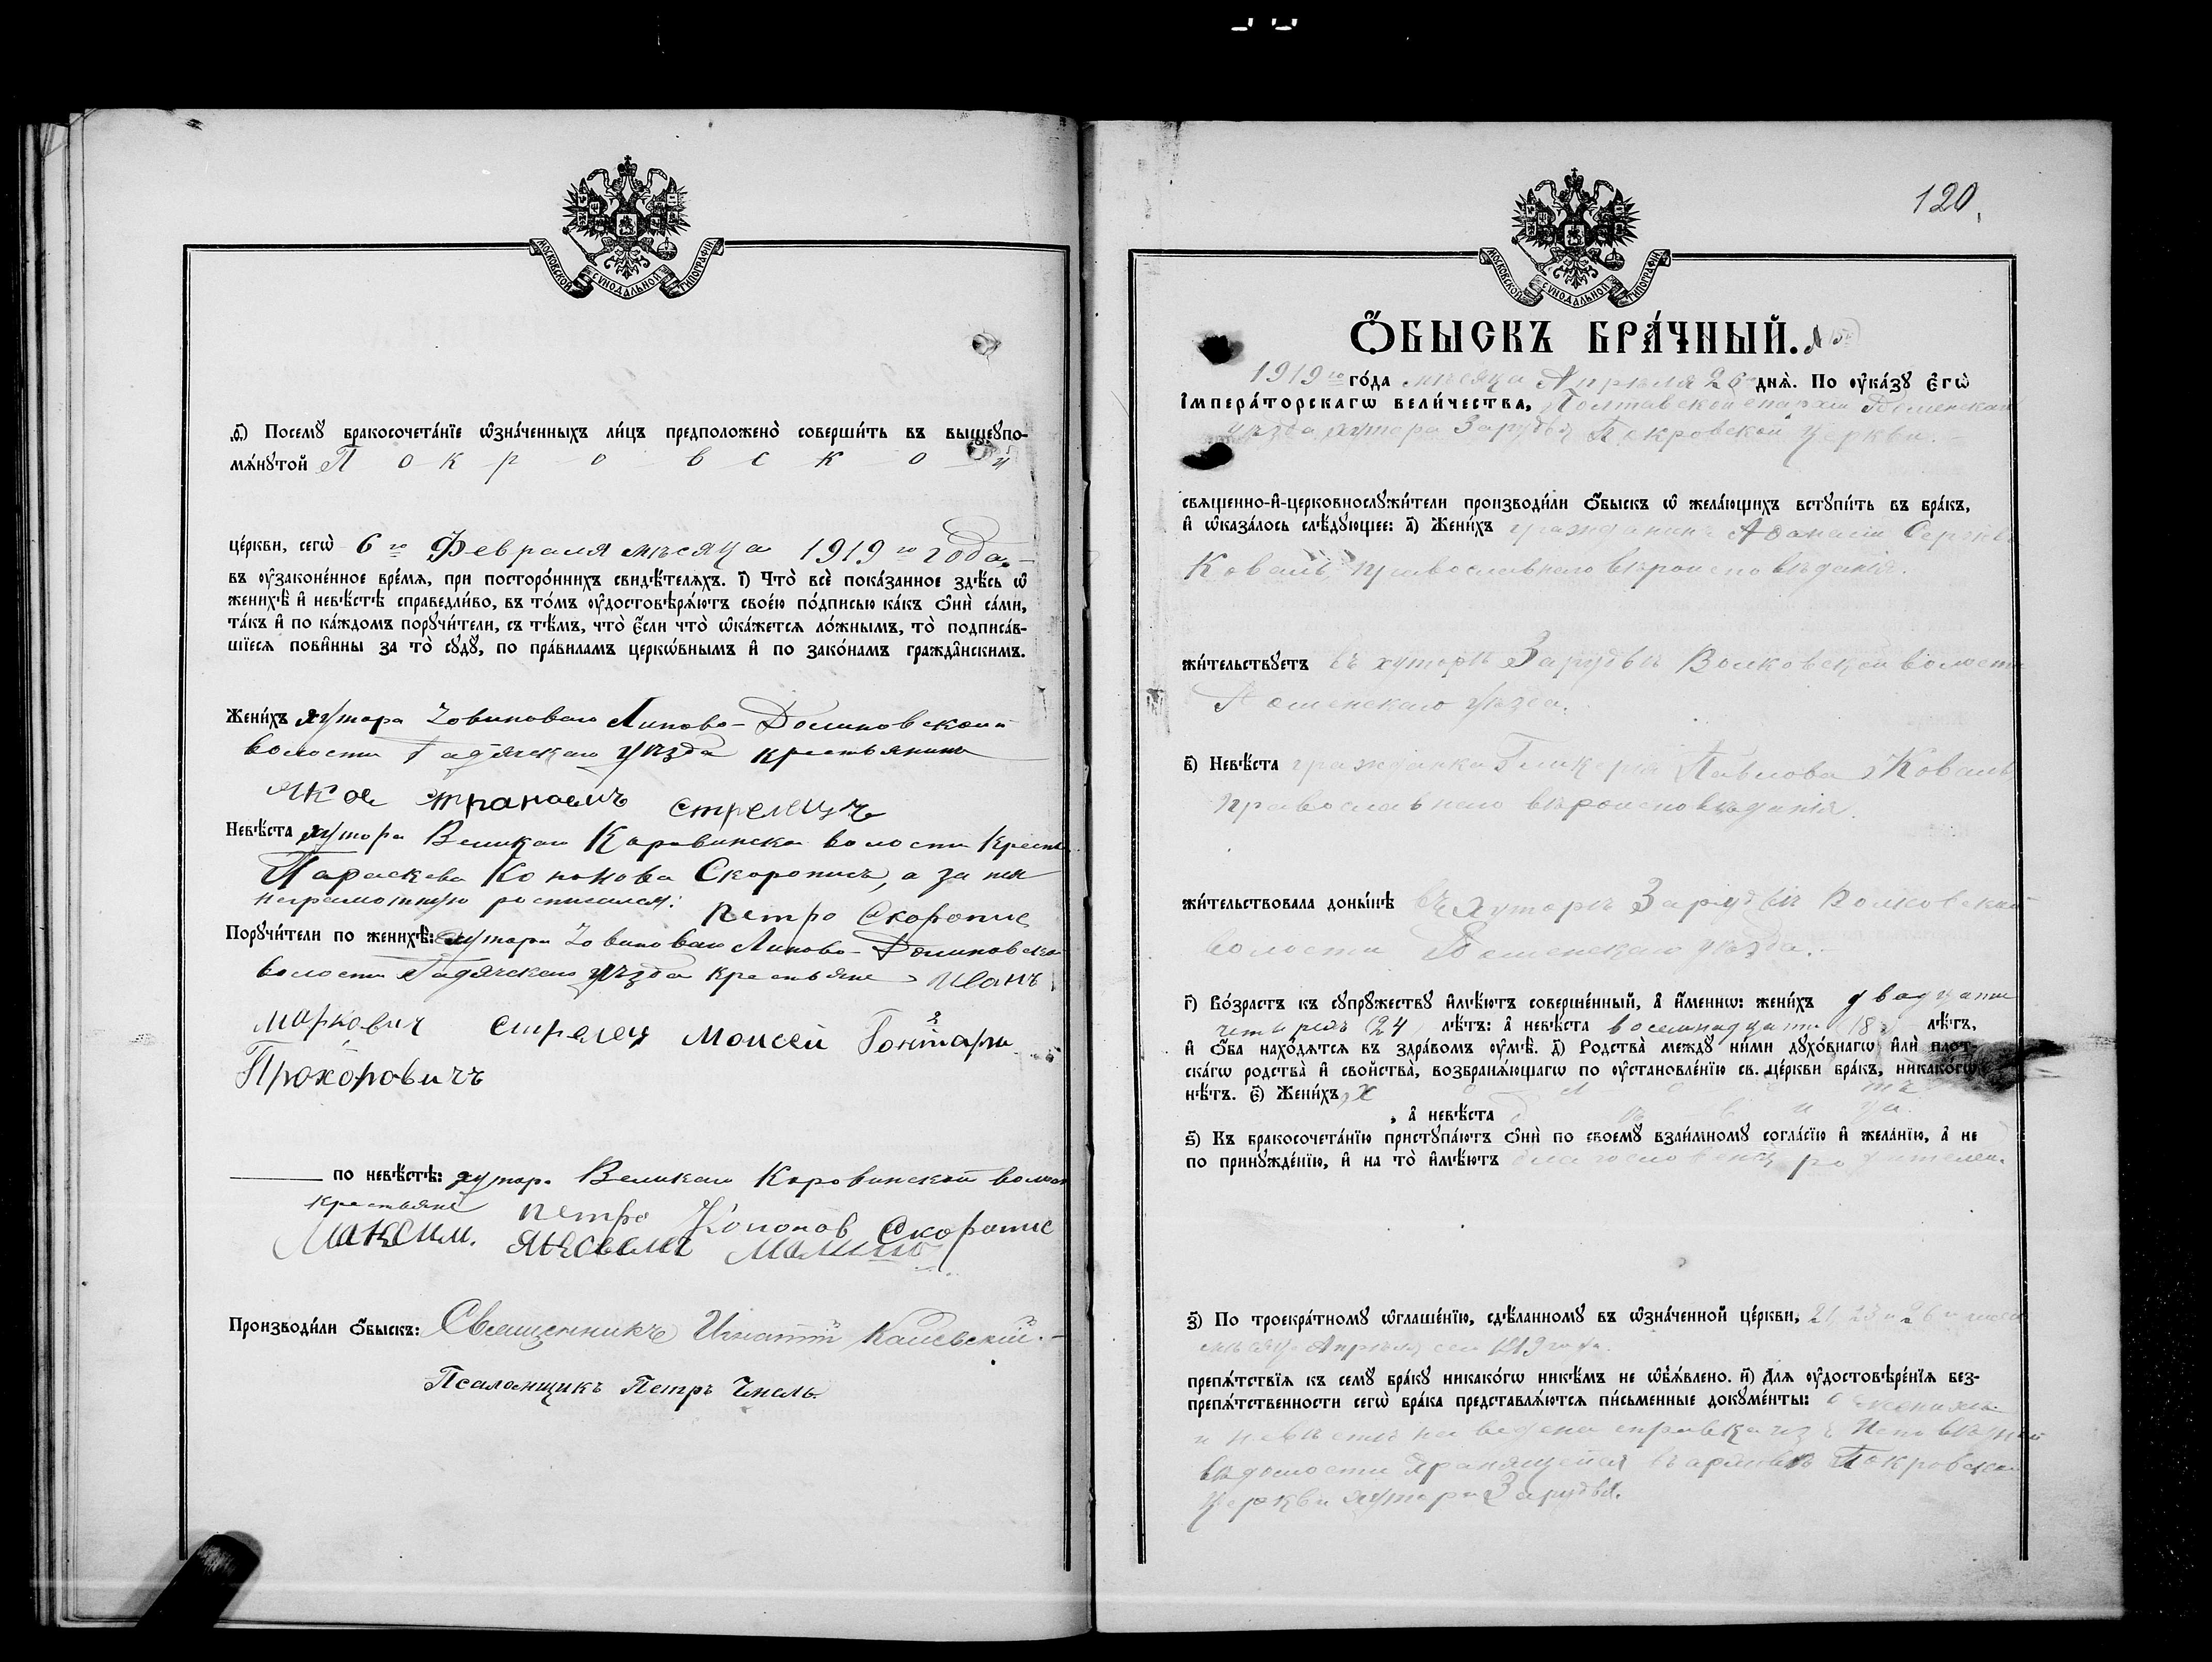 МОСКОВСКОЙ СѴНОДАЛЬНОЙ ТИПОГРАФІИ
ѳ҃) Посемꙋ̀ бракосочета́нїе ѡ҆зна́ченныхъ ли́цъ предположено̀ соверши́ть въ вышеꙋпо-
мѧ́нꙋтой Покровской
це́ркви, сегѡ̀ 6го Февраля мѣсяца 1919го года
въ ᲂу҆законе́нное вре́мѧ, при посторо́ннихъ свидѣ́телѧхъ. і҃) Что̀ всѐ пока́занное здѣ́сь ѡ҆
женихѣ̀ и҆ невѣ́стѣ справедли́во, въ то́мъ ᲂу҆достовѣрѧ́ютъ свое́ю по́дписью ка́къ ѻ҆нѝ са́ми,
та́къ и҆ по ка́ждомъ порꙋчи́тели, съ тѣ́мъ, что̀ є҆́сли что̀ ѡ҆ка́жетсѧ ло́жнымъ, то̀ подписа́в-
шїесѧ пови́нны за то̀ сꙋдꙋ̀, по пра́виламъ церкѡ́внымъ и҆ по зако́намъ гражда́нскимъ.
Жени́хъ хутора Липово-Долиновской
волости Гадячского уѣзда крестьянинъ
Стрелецъ
Невѣ́ста хутора Великаго Коровинской волости крест
Параскева Кононова Скоропись, а за нея
неграмотную росписался: Петро Скоропис
Порꙋчи́тели по женихѣ̀: хутора Липово-Долиновской
волости Гадячскаго уѣзда крестьяне Иванъ
Маркович Стрелец Моисей Гонтарь
Прохоровичъ
по невѣ́стѣ: хутор. Великаго Коровинской волости
крестьяне Петро Кононов Скоропис
Максим
Производи́ли ѻ҆́быскъ: Священникъ Игнатій
Псаломщикъ Петръ
120
МОСКОВСКОЙ СѴНОДАЛЬНОЙ ТИПОГРАФІИ
Ѻ҆́БЫСКЪ БРА́ЧНЫЙ. №
1919го го́да мѣсяца Апрѣля 26 днѧ̀. По ᲂу҆ка́зꙋ Є҆гѡ̀
І҆мпера́торскагѡ вели́чества, Полтавской епархіи Роменскаго
уѣзда хутора Зарудья Покровской Церкви.
свѧщенно-и҆-церковнослꙋжи́тели производи́ли ѻ҆́быскъ ѡ҆ жела́ющихъ встꙋпи́ть въ бра́къ,
и҆ ѡ҆каза́лось слѣ́дꙋющее: а҃) Жени́хъ гражданинъ Афанасій Сергѣевъ
Коваль, православнаго вѣроисповѣданія.
жи́тельствꙋетъ въ хуторѣ Зарудьѣ Волковской волости
Роменскаго уѣзда.
в҃) Невѣ́ста гражданка Гликерія Павлова Коваль
православнаго вѣроисповѣданія.
жи́тельствовала доны́нѣ въ хуторѣ Зарудьѣ Волковской
волости Роменскаго уѣзда.
г҃) Во́зрастъ къ сꙋпрꙋ́жествꙋ и҆мѣ́ютъ соверше́нный, а҆ и҆́меннѡ: жени́хъ двадцати
четырехъ (24) лѣ́тъ: а҆ невѣ́ста восемнадцати (18) лѣ́тъ,
и҆ ѻ҆́ба нахо́дѧтсѧ въ здра́вомъ ᲂу҆мѣ̀. д҃) Родства̀ междꙋ ни́ми дꙋхо́внагѡ и҆лѝ пло́т-
скагѡ родства̀ и҆ сво́йства̀, возбранѧ́ющагѡ по ᲂу҆становле́нїю св. це́ркви бра́къ, никако́гѡ
нѣ́тъ. є҃) Жени́хъ холостъ
, а҆ невѣ́ста дѣвица.
ѕ҃) Къ бракосочета́нїю пристꙋпа́ютъ ѻ҆нѝ по своемꙋ̀ взаи́мномꙋ согла́сїю и҆ жела́нїю, а҆ не
по принꙋжде́нїю, и҆ на то̀ и҆мѣ́ютъ благословеніе родителей.
з҃) По троекра́тномꙋ ѡ҆глаше́нїю, сдѣ́ланномꙋ въ ѡ҆зна́ченной це́ркви, 21, 23 и 26 числа
мѣсяца Апрѣля сего 1919 года.
препѧ́тствїѧ къ семꙋ̀ бра́кꙋ никако́гѡ никѣ́мъ не ѡ҆б̾ѧ́влено. и҃) Длѧ ᲂу҆достовѣре́нїѧ без-
препѧ́тственности сегѡ̀ бра́ка представлѧ́ютсѧ пи́сьменные докꙋме́нты: о женихѣ
и невѣстѣ наведена справка изъ Исповѣдной
вѣдомости хранящейся въ архивѣ Покровской
Церкви хутора Зарудья.